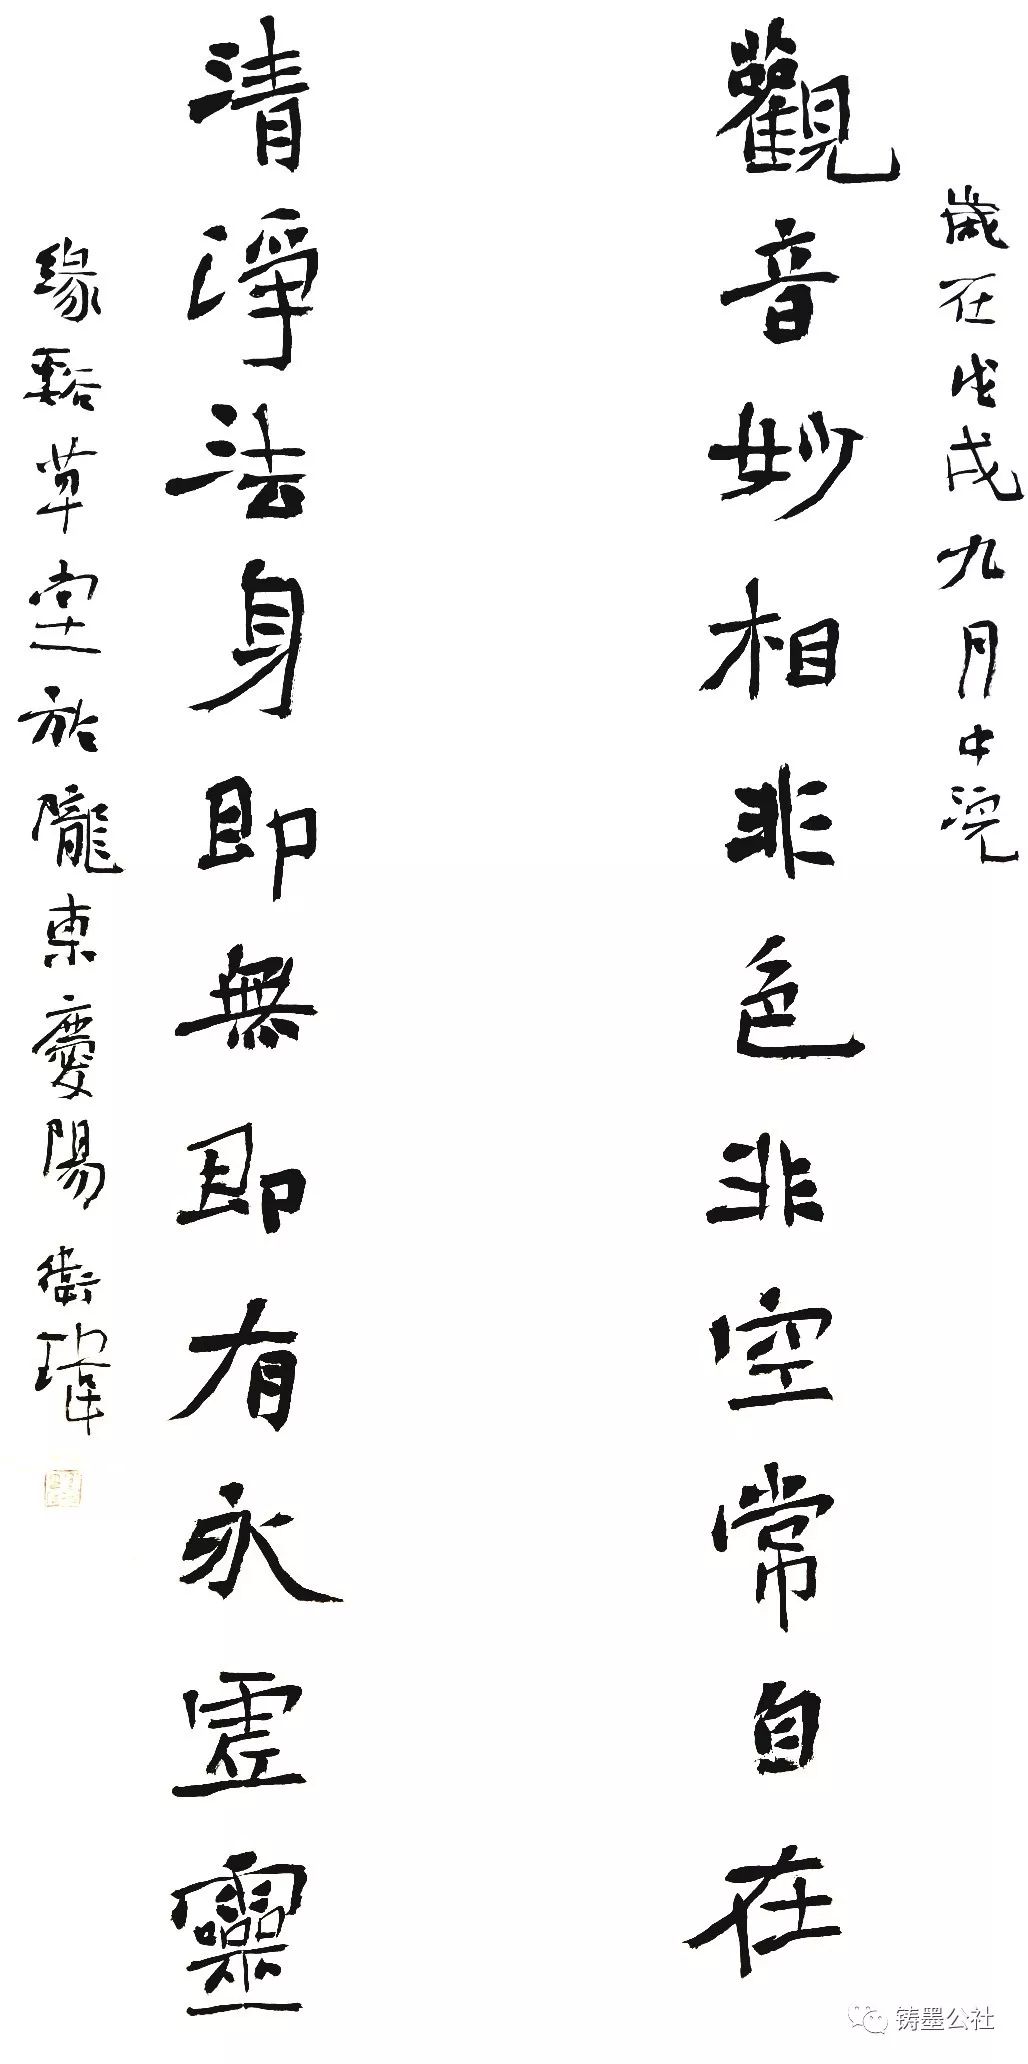 歲在戊戌九月中浣
觀音妙相非色非空常自在
清淨法身即無即有永虛靈
緣谿草堂於隴東慶陽 衛瑋
铸墨公社